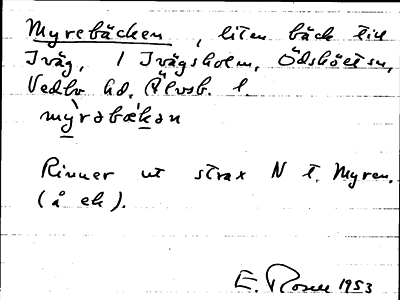 Myrebäcken, liten bäck till
Iväg, / Ivägsholm, Ödsköltsn,
Vedbo hd, Älvsb. l.
mỳrəbækən
Rinner ut strax N t. Myren.
(å ek).
E. Rosell 1953